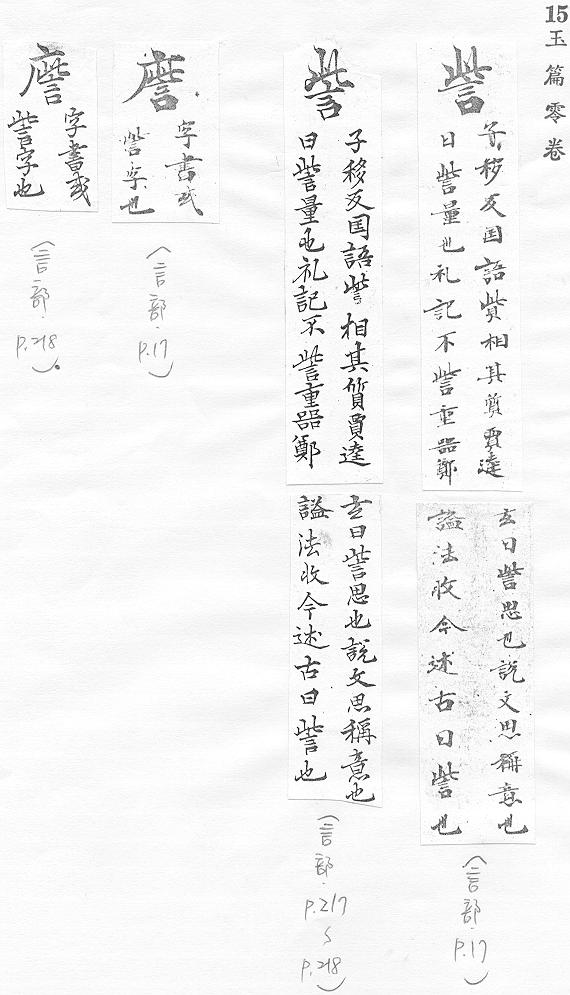 15
玉篇零卷
訾
子移反国語訾相其質賈逵
曰訾量也礼記不訾重器鄭
玄曰訾思也説文思稱意也
謚法收今述古曰訾也
(言部.P.17)
訾
子移反国語訾相其質賈逵
曰訾量也礼記不訾重器鄭
玄曰訾思也説文思稱意也
謚法收今述古曰訾也
(言部.P.217~P.218)
字書或
訾字也
(言部.P.17)
字書或
訾字也
(言部.P.218).